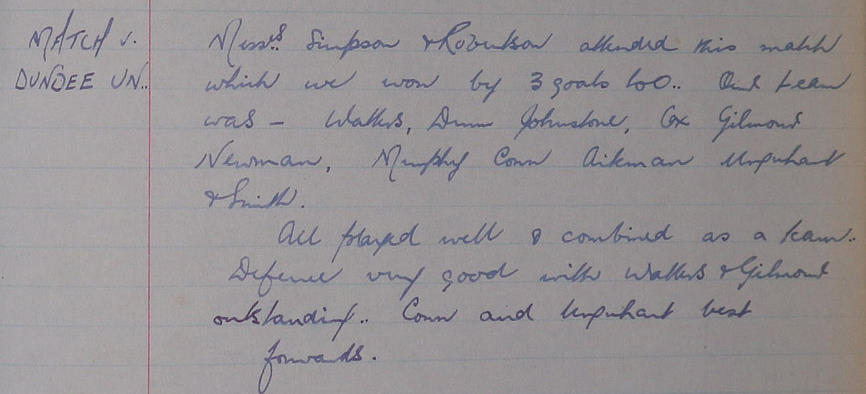 MATCH v.
DUNDEE UN..
Messrs. Simpson & Robertson attended this match
which we won by 3 goals to 0.. Our team
was – Watters, Dunn Johnstone, Cox Gilmour
Newman, Murphy Conn Aikman Urquhart
& Smith.
All played well & combined as a team..
Defence very good with Watters & Gilmour
outstanding.. Conn and Urquhart best
forwards.